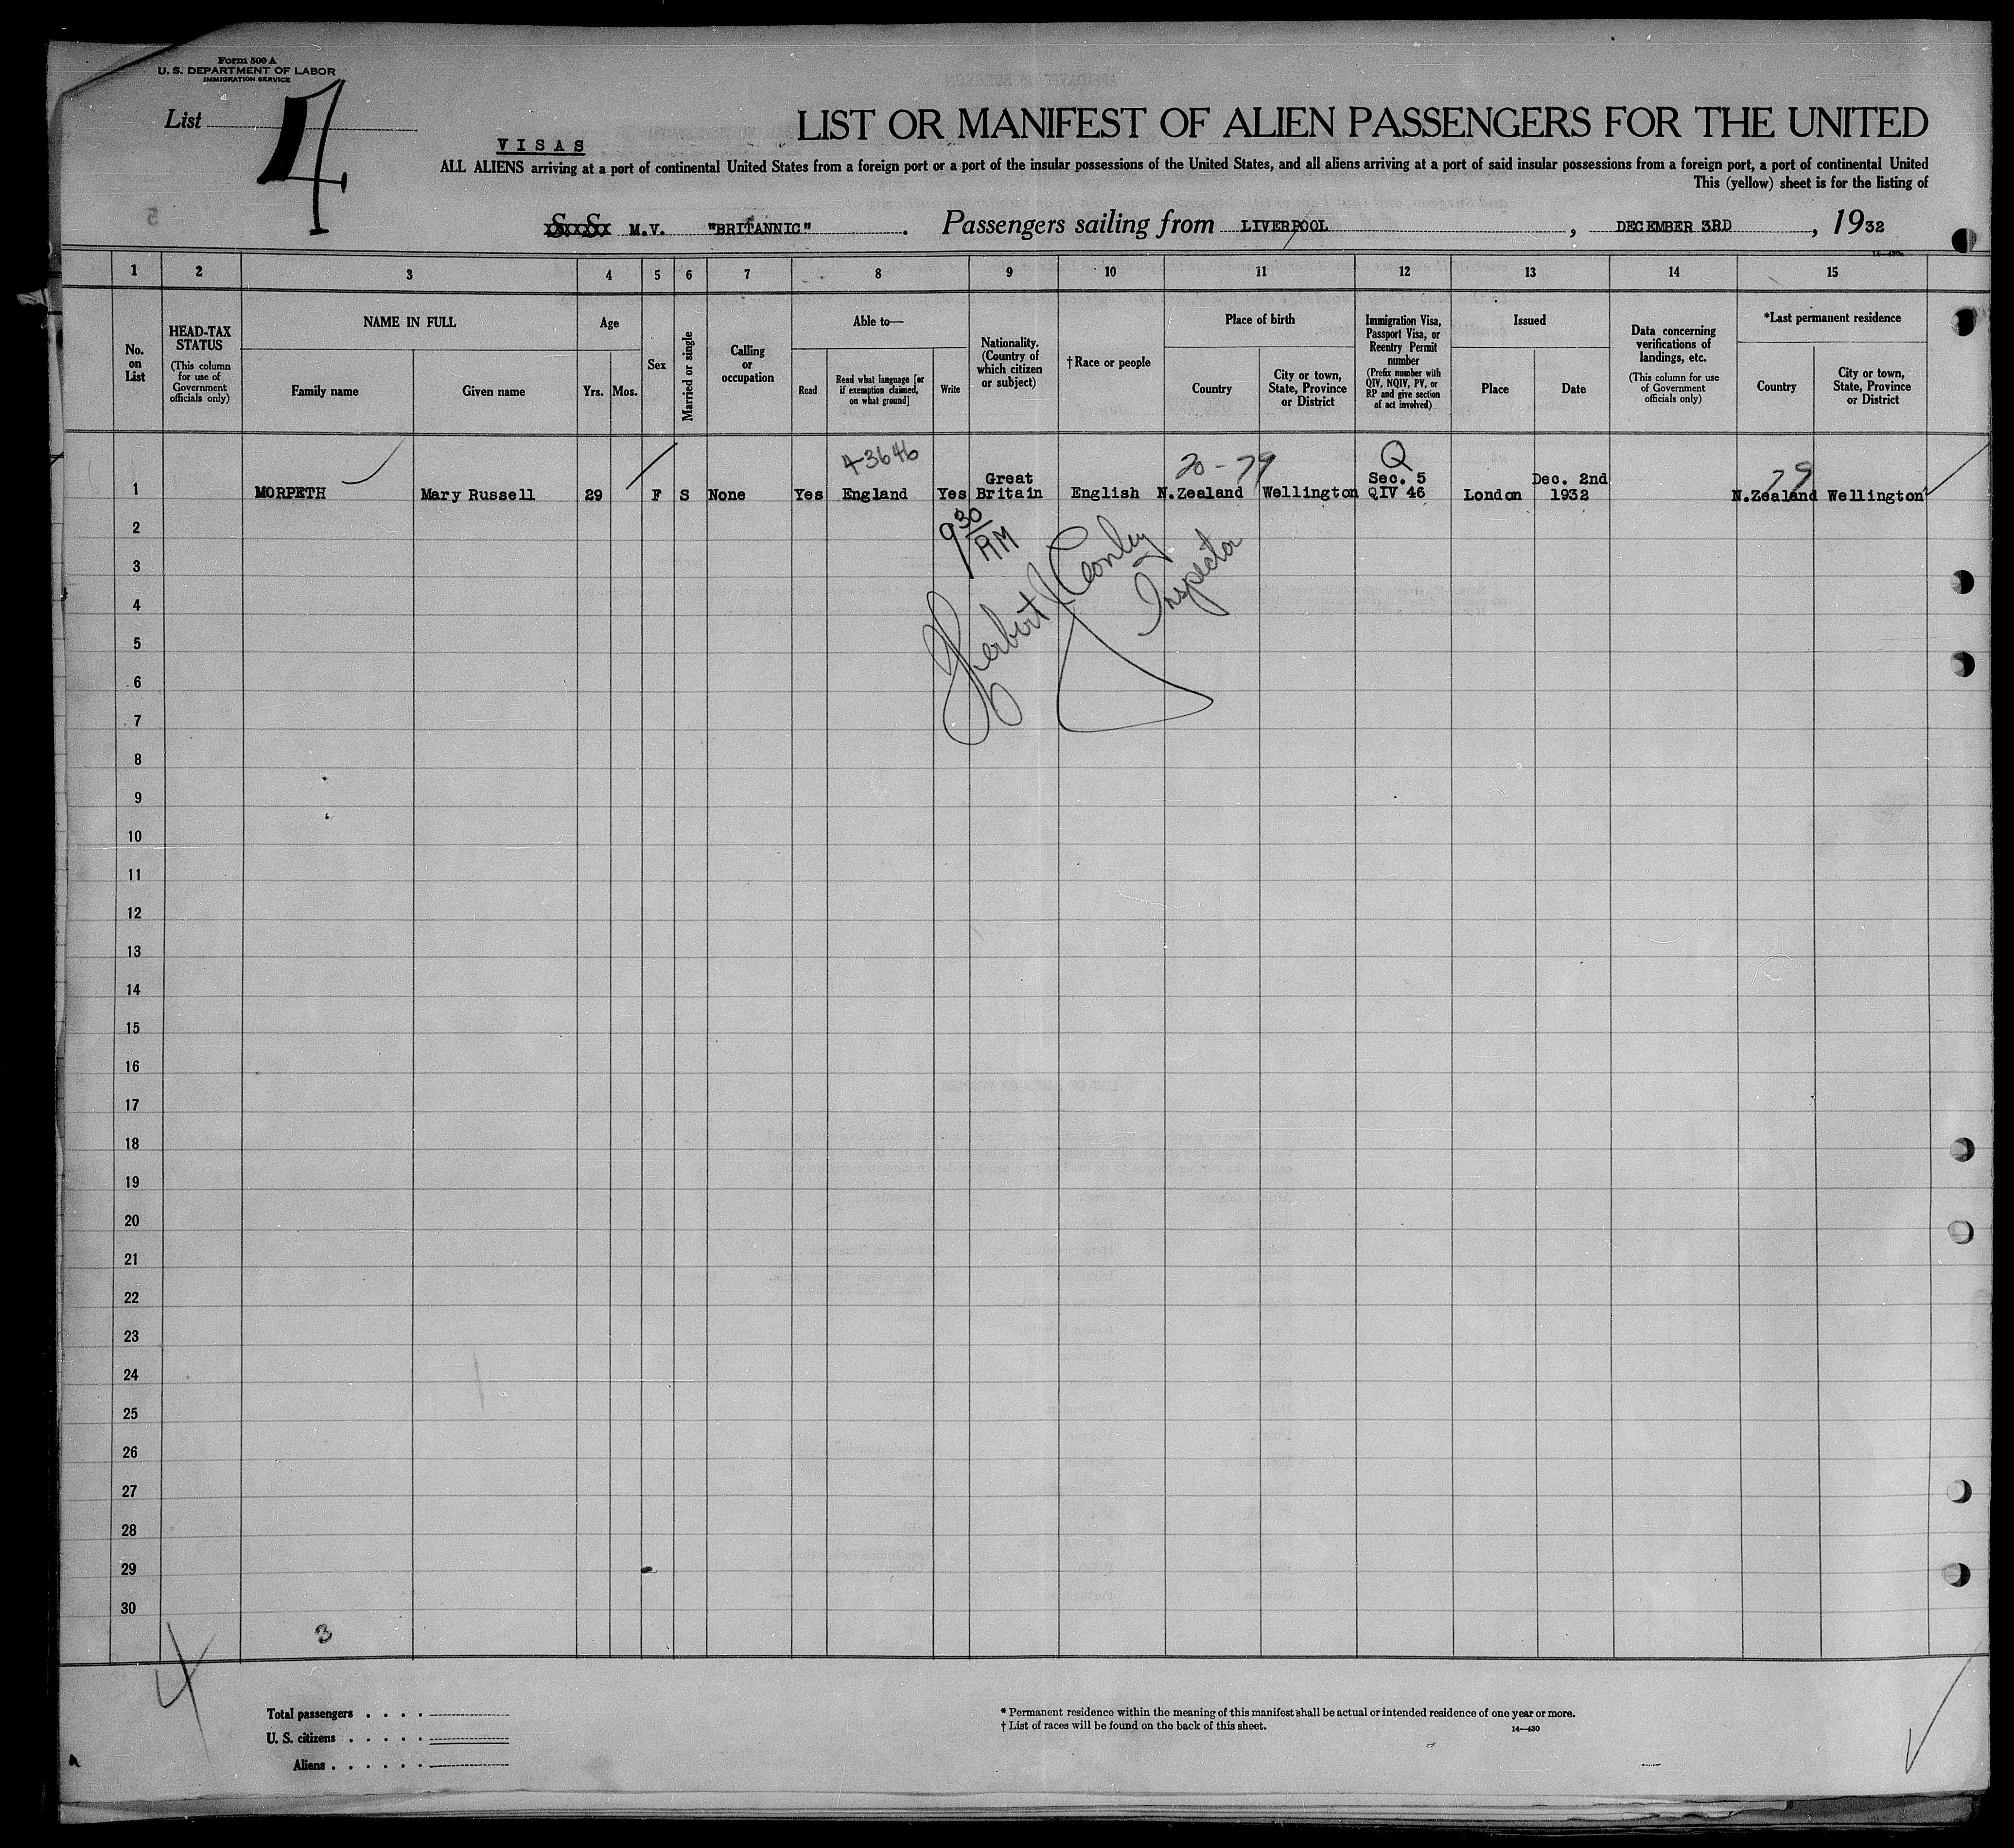 Form 500 A
U. S. DEPARTMENT OF LABOR
IMMIGRATION SERVICE
List 4
LIST OR MANIFEST OF ALIEN PASSENGERS FOR THE UNITED
VISAS
ALL ALIENS arriving at a port of continental United States from a foreign port or a port of the insular possessions of the United States, and all aliens arriving at a port of said insular possessions from a foreign port, a port of continental United
This (yellow) sheet is for the listing of
S. S. M.V. "BRITANNIC" . Passengers sailing from LIVERPOOL , DECEMBER 3RD , 1932
14—430
1 2 3 4 5 6 7 8 9 10 11 12 13 14 15
No. on List
HEAD-TAX STATUS
(This column for use of Government officials only)
NAME IN FULL
Family name
Given name
Age
Yrs.
Mos.
Sex
Married or single
Calling or occupation
Able to—
Read
Read what language [or if exemption claimed, on what ground]
Write
Nationality. (Country of which citizen or subject)
†Race or people
Place of birth
Country
City or town, State, Province or District
Immigration Visa, Passport Visa, or Reentry Permit number
(Prefix number with QIV, NQIV, PV, or RP and give section of act involved)
Issued
Place
Date
Data concerning verifications of landings, etc.
(This column for use of Government officials only)
*Last permanent residence
Country
City or town, State, Province or District
4-3646 20-79 Q 79
Great Sec. 5 Dec. 2nd
1 MORPETH Mary Russell 29 F S None Yes England Yes Britain English N.Zealand Wellington QIV 46 London 1932 N.Zealand Wellington
9 30/AM
Herbert J Conley
Inspector
2
3
4
5
6
7
8
9
10
11
12
13
14
15
16
17
18
19
20
21
22
23
24
25
26
27
28
29
30
3
4
Total passengers . . . .
U. S. citizens . . . . .
Aliens . . . . . .
* Permanent residence within the meaning of this manifest shall be actual or intended residence of one year or more.
† List of races will be found on the back of this sheet.
14—430